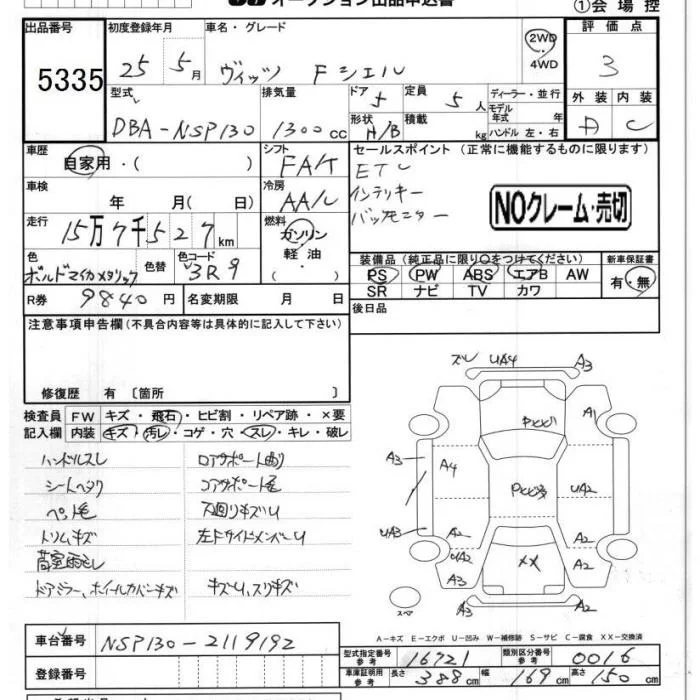 オークション出品申込書
①会場控
出品番号 初度登録年月 車名・グレード 2WD 評価点
5335 25 5月 ヴィッツ Fシエル 4WD 3
型式 排気量 ドア 定員 ディーラー・並行 外装 内装
DBA-NSP130 1300cc 5 5人 モデル年式 年 A C
形状 積載 kg ハンドル 左・右
H/B
車歴 シフト セールスポイント (正常に機能するものに限ります)
自家用・( ) FA/T ETC
車検 冷房 インテリキー
年 月( 日) AA/C バックモニター
NOクレーム・売切
走行 燃料
15万7千527km ガソリン
軽油
・
( )
色 色替 色コード 装備品 (純正品に限り○をつけてください) 新車保証書
ボルドーマイカメタリック 3R9 PS PW ABS エアB AW 有・無
R券 9840円 名変期限 月 日 SR ナビ TV カワ
後日品
注意事項申告欄 (不具合内容等は具体的に記入して下さい)
修復歴 有 〔箇所 〕
検査員 FW キズ・飛石・ヒビ割・リペア跡・×要
記入欄 内装 キズ・汚レ・コゲ・穴・スレ・キレ・破レ
ハンドルスレ ロアサポート曲り
シートヘタリ コアサポート
ペット毛 下回りキズU
トリムキズ 左FサイドメンバーU
ドアミラー、ホイールカバーキズ キズU、スリキズ
ズレ UA4 A3
A1
A3 A4 UA2
UA3 A2 A2
UA2 XX A2
A3 A2
スペア A3 A2
A-キズ E-エクボ U-凹み W-補修跡 S-サビ C-腐食 XX-交換済
車台番号 NSP130-2119192
型式指定番号 参考 16721 類別区分番号 参考 0016
登録番号 車庫証明用 参考 長さ 388cm 幅 169cm 高さ 150cm